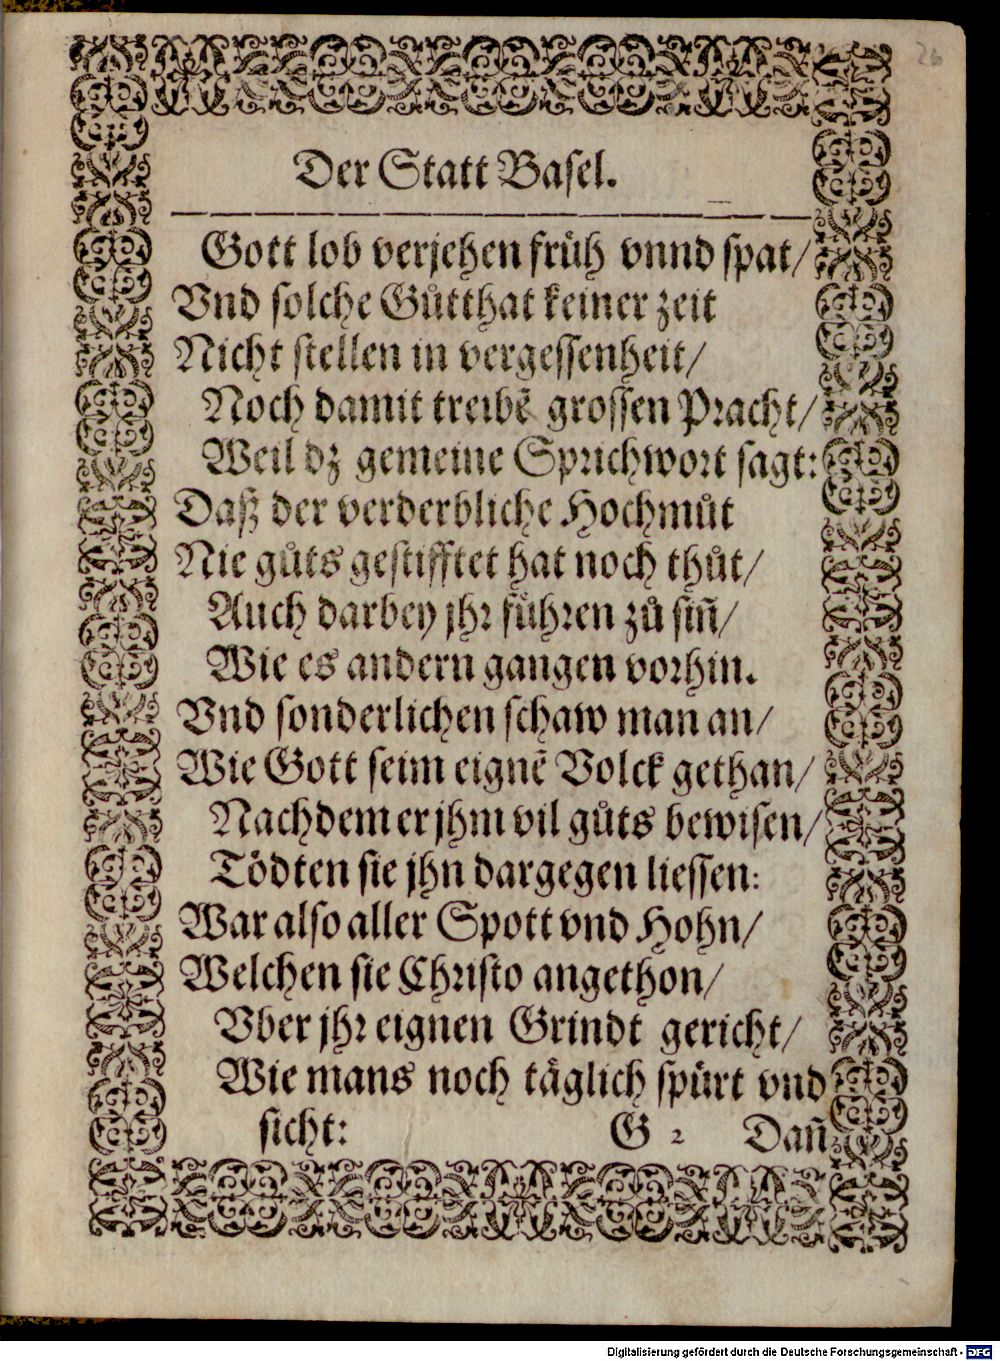 26
Der Statt Basel.
Gott lob verjehen früh vnnd spat/
Vnd solche Gůtthat keiner zeit
Nicht stellen in vergessenheit/
Noch damit treibẽ grossen Pracht/
Weil dz gemeine Sprichwort sagt:
Daß der verderbliche Hochmůt
Nie gůts gestifftet hat noch thůt/
Auch darbey jhr führen zů siñ/
Wie es andern gangen vorhin.
Vnd sonderlichen schaw man an/
Wie Gott seim eignẽ Volck gethan/
Nachdem er jhm vil gůts bewisen/
Tödten sie jhn dargegen liessen:
War also aller Spott vnd Hohn/
Welchen sie Christo angethon/
Vber jhr eignen Grindt gericht/
Wie mans noch täglich spürt vnd
sicht: G 2 Dañ
Digitalisierung gefördert durch die Deutsche Forschungsgemeinschaft - DFG